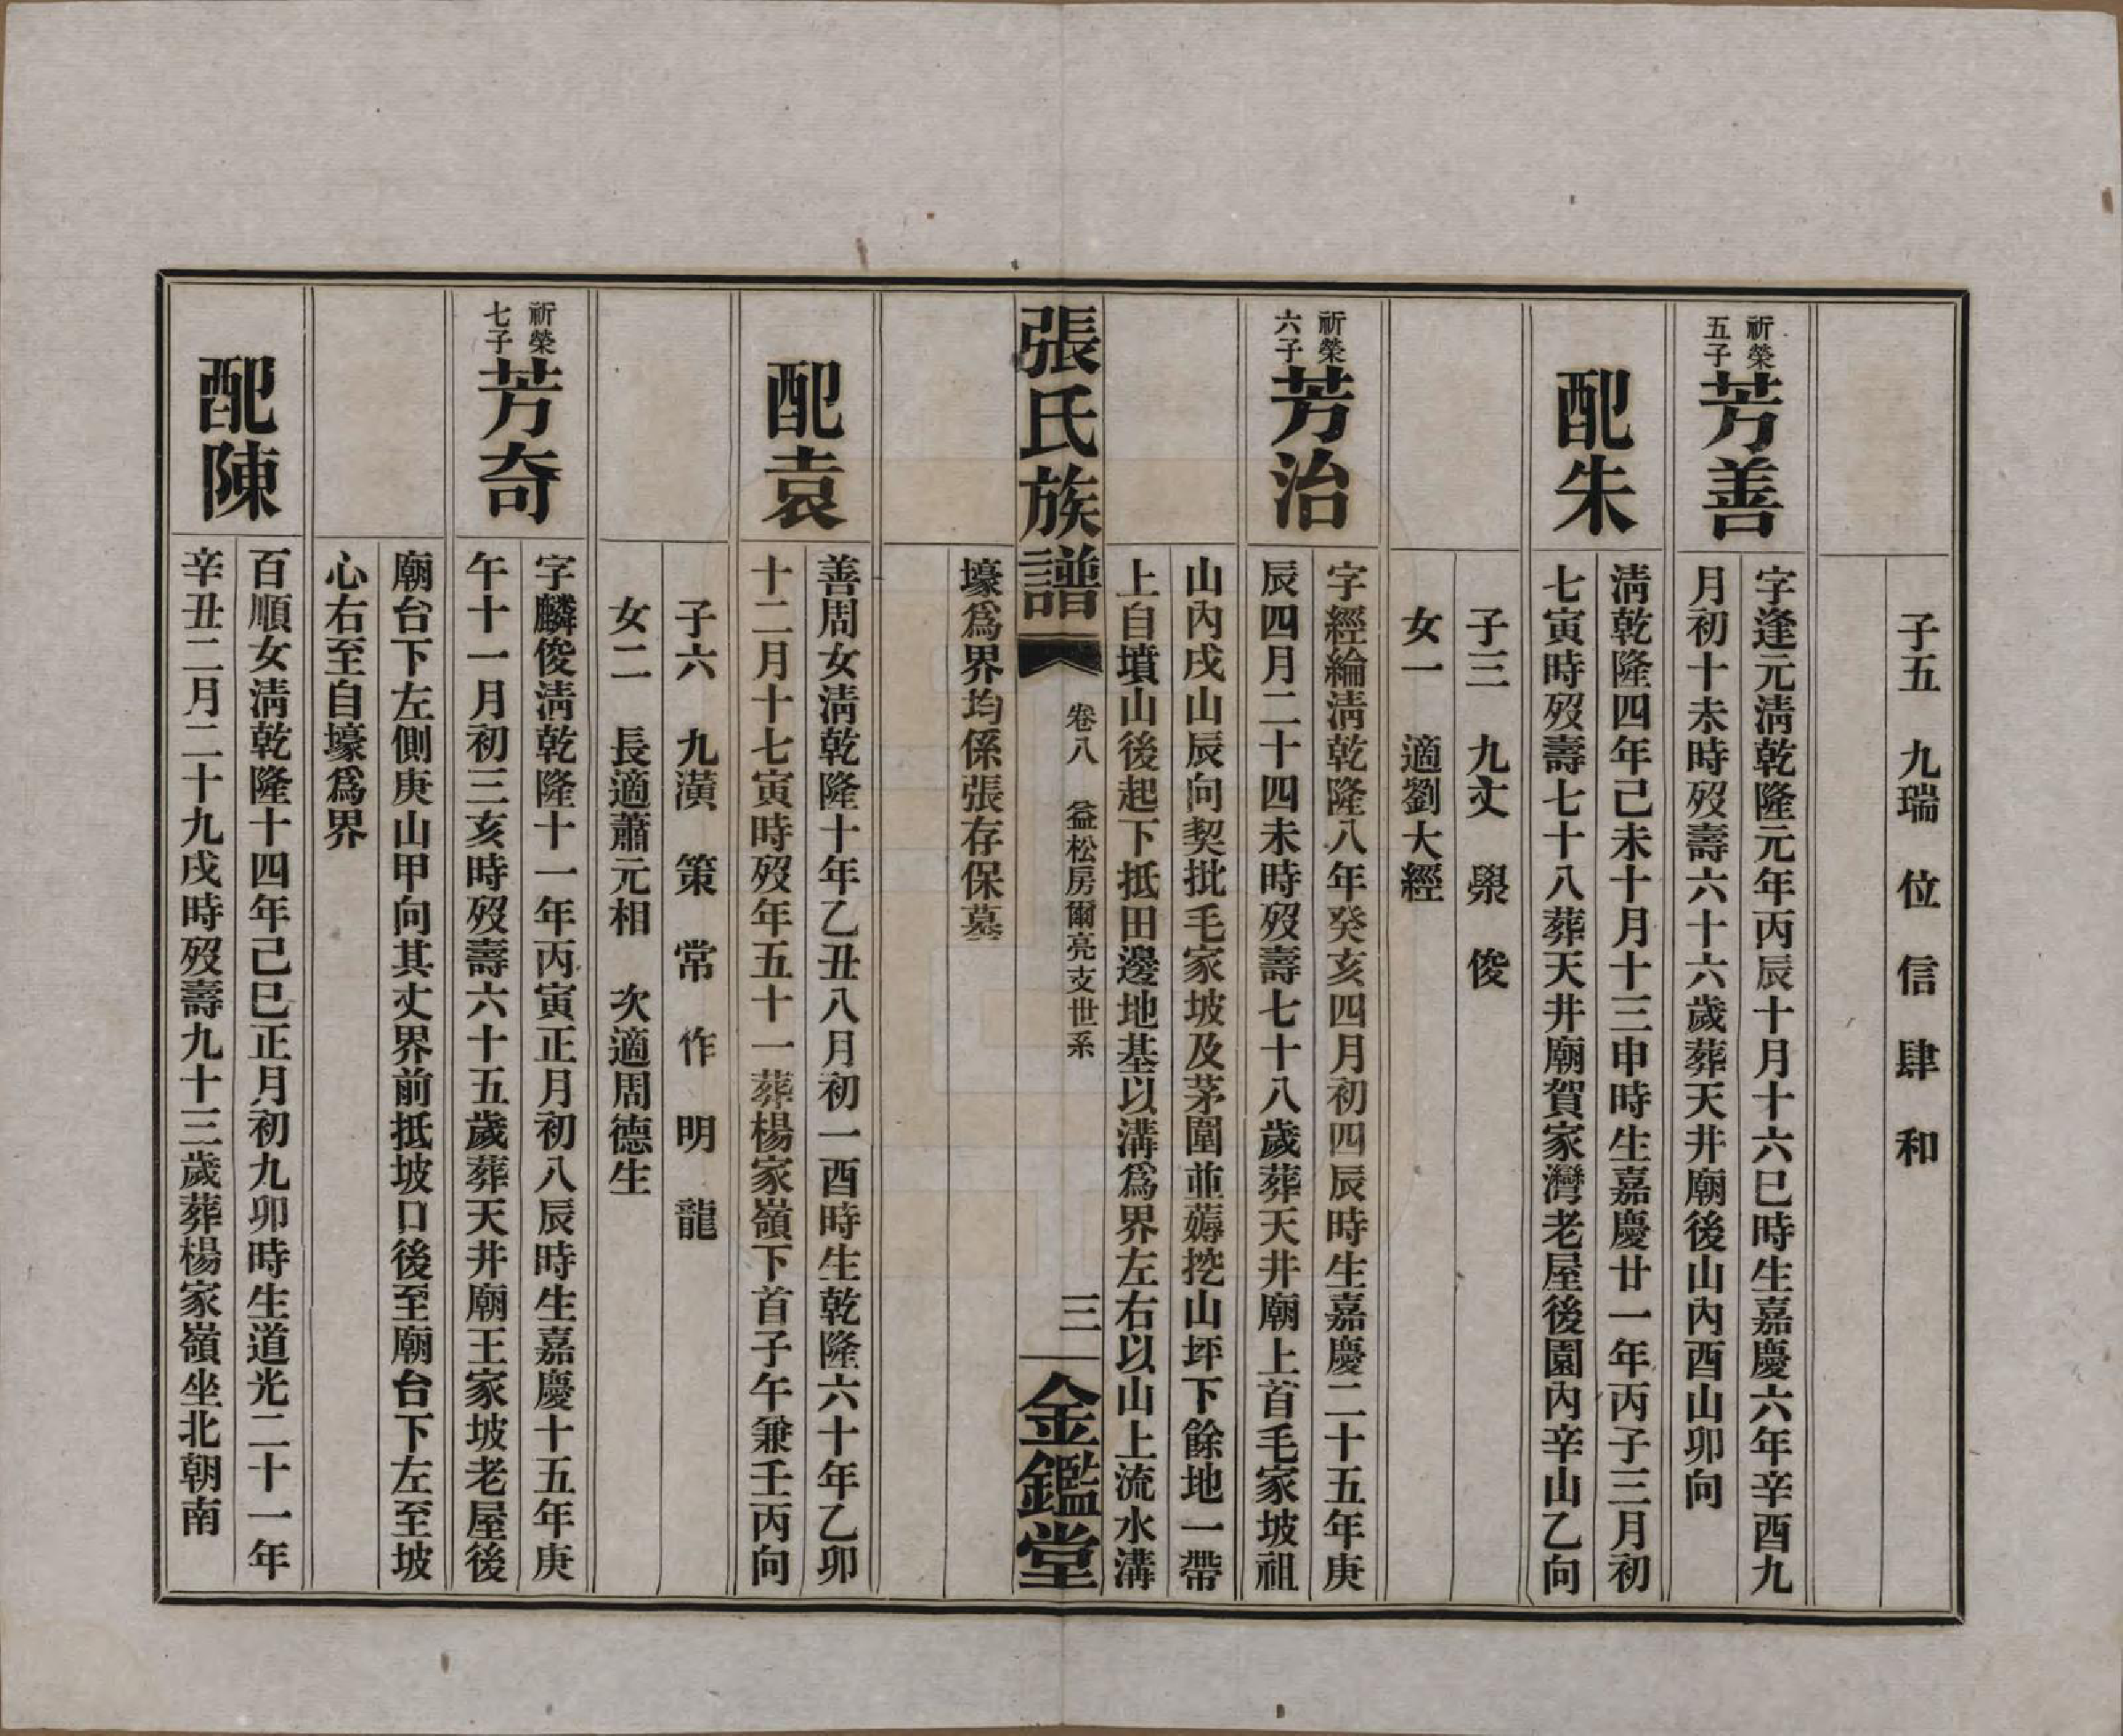 子五 九瑞 位 信 肆 和
祈榮五子
芳善
字逢元淸乾隆元年丙辰十月十六巳時生嘉慶六年辛酉九
月初十未時歿壽六十六歲葬天井廟後山內酉山卯向
配朱
淸乾隆四年己未十月十三申時生嘉慶廿一年丙子三月初
七寅時歿壽七十八葬天井廟賀家灣老屋後園內辛山乙向
子三 九文 舉 俊
女一 適劉大經
祈榮六子
芳治
字經綸淸乾隆八年癸亥四月初四辰時生嘉慶二十五年庚
辰四月二十四未時歿壽七十八歲葬天井廟上首毛家坡祖
山內戌山辰向契批毛家坡及茅圍並薅挖山坪下餘地一帶
上自墳山後起下抵田邊地基以溝爲界左右以山上流水溝
張氏族譜
卷八 益松房爾亮支世系
三
金鑑堂
壕爲界均係張存保墓
配袁
善周女淸乾隆十年乙丑八月初一酉時生乾隆六十年乙卯
十二月十七寅時歿年五十一葬楊家嶺下首子午兼壬丙向
子六 九潢 策 常 作 明 龍
女二 長適蕭元相 次適周德生
祈榮七子
芳奇
字麟俊淸乾隆十一年丙寅正月初八辰時生嘉慶十五年庚
午十一月初三亥時歿壽六十五歲葬天井廟王家坡老屋後
廟台下左側庚山甲向其丈界前抵坡口後至廟台下左至坡
心右至自壕爲界
配陳
百順女淸乾隆十四年己巳正月初九卯時生道光二十一年
辛丑二月二十九戌時歿壽九十三歲葬楊家嶺坐北朝南